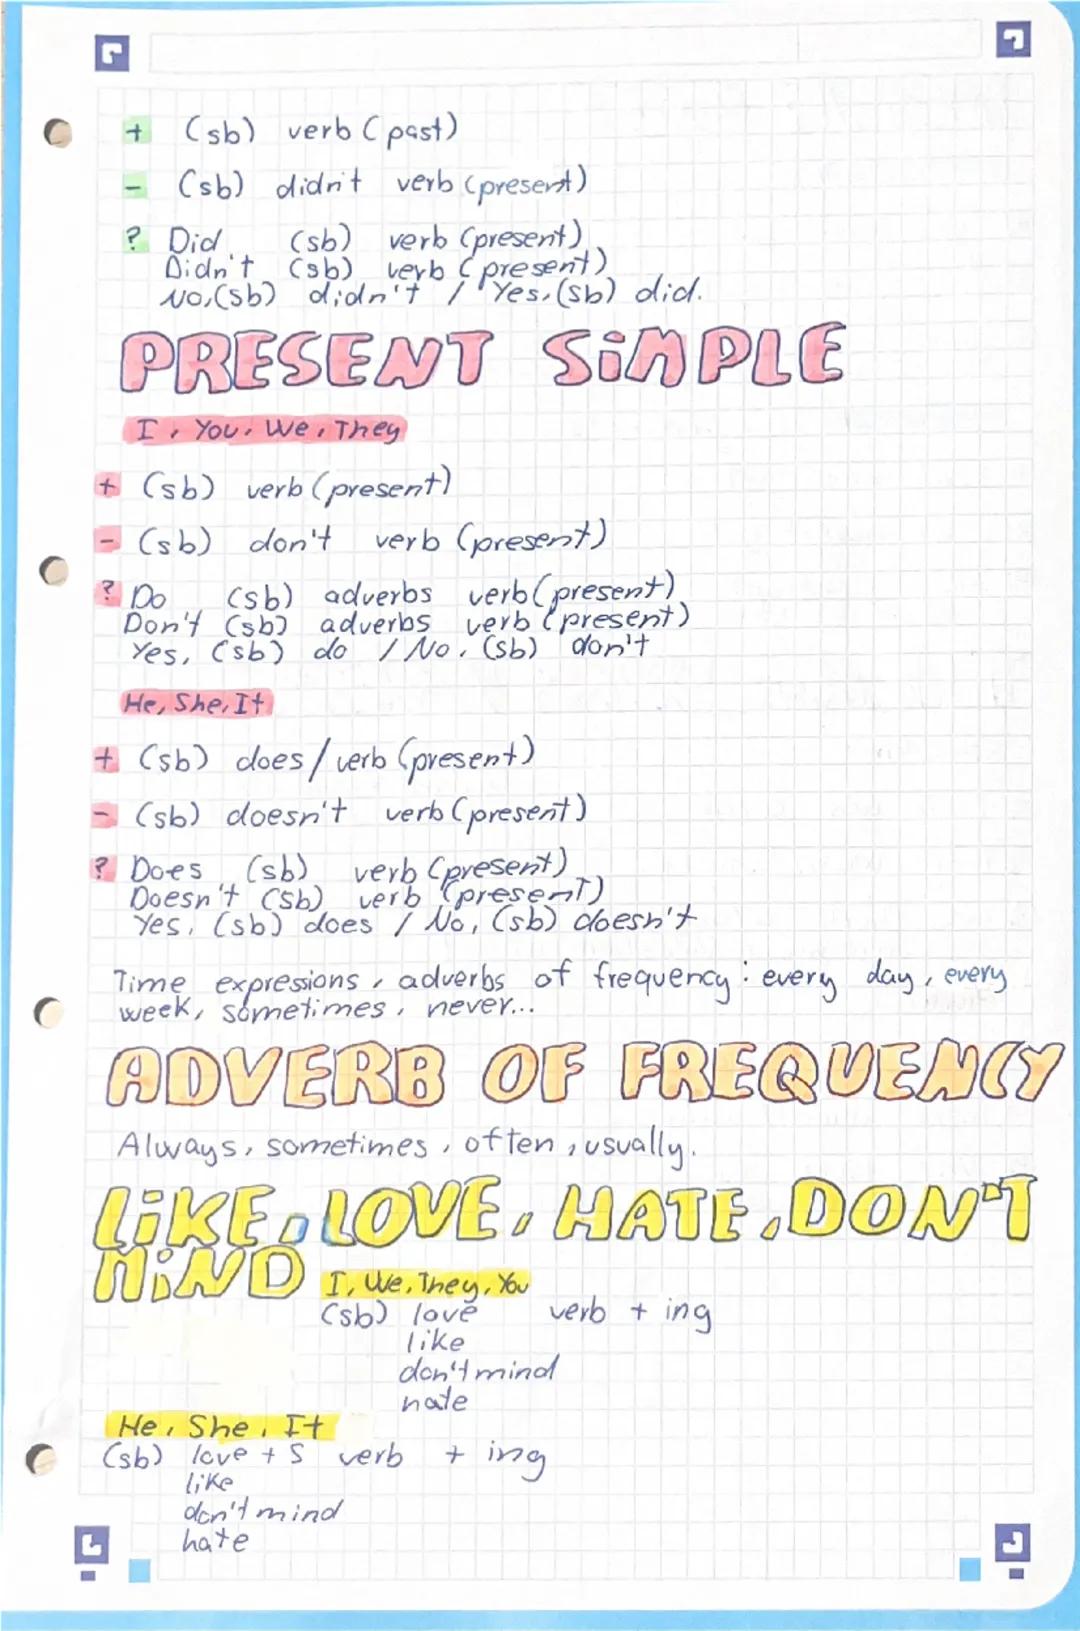 + (sb) verb (past)
- (sb) didn't verb (present)
? Did (sb) verb (present)
Didn't (sb) verb (present)
No, (sb) didn't / Yes, (sb) did.
PRESENT SiMPLE
I, You, We, They
+ (sb) verb (present)
- (sb) don't verb (present)
? Do (sb) adverbs verb (present)
Don't (sb) adverbs verb (present)
Yes, (sb) do / No, (sb) don't
He, She, It
+ (sb) does / verb (present)
- (sb) doesn't verb (present)
? Does (sb) verb (present)
Doesn't (sb) verb (present)
Yes, (sb) does / No, (sb) doesn't
Time expressions, adverbs of frequency: every day, every
week, sometimes, never...
ADVERB OF FREQUENCY
Always, sometimes, often, usually.
LiKE, LOVE, HATE, DON'T
MiND
I, We, They, You
(sb) love verb + ing
like
don't mind
hate
He, She, It
(sb) love + S verb + ing
like
don't mind
hate